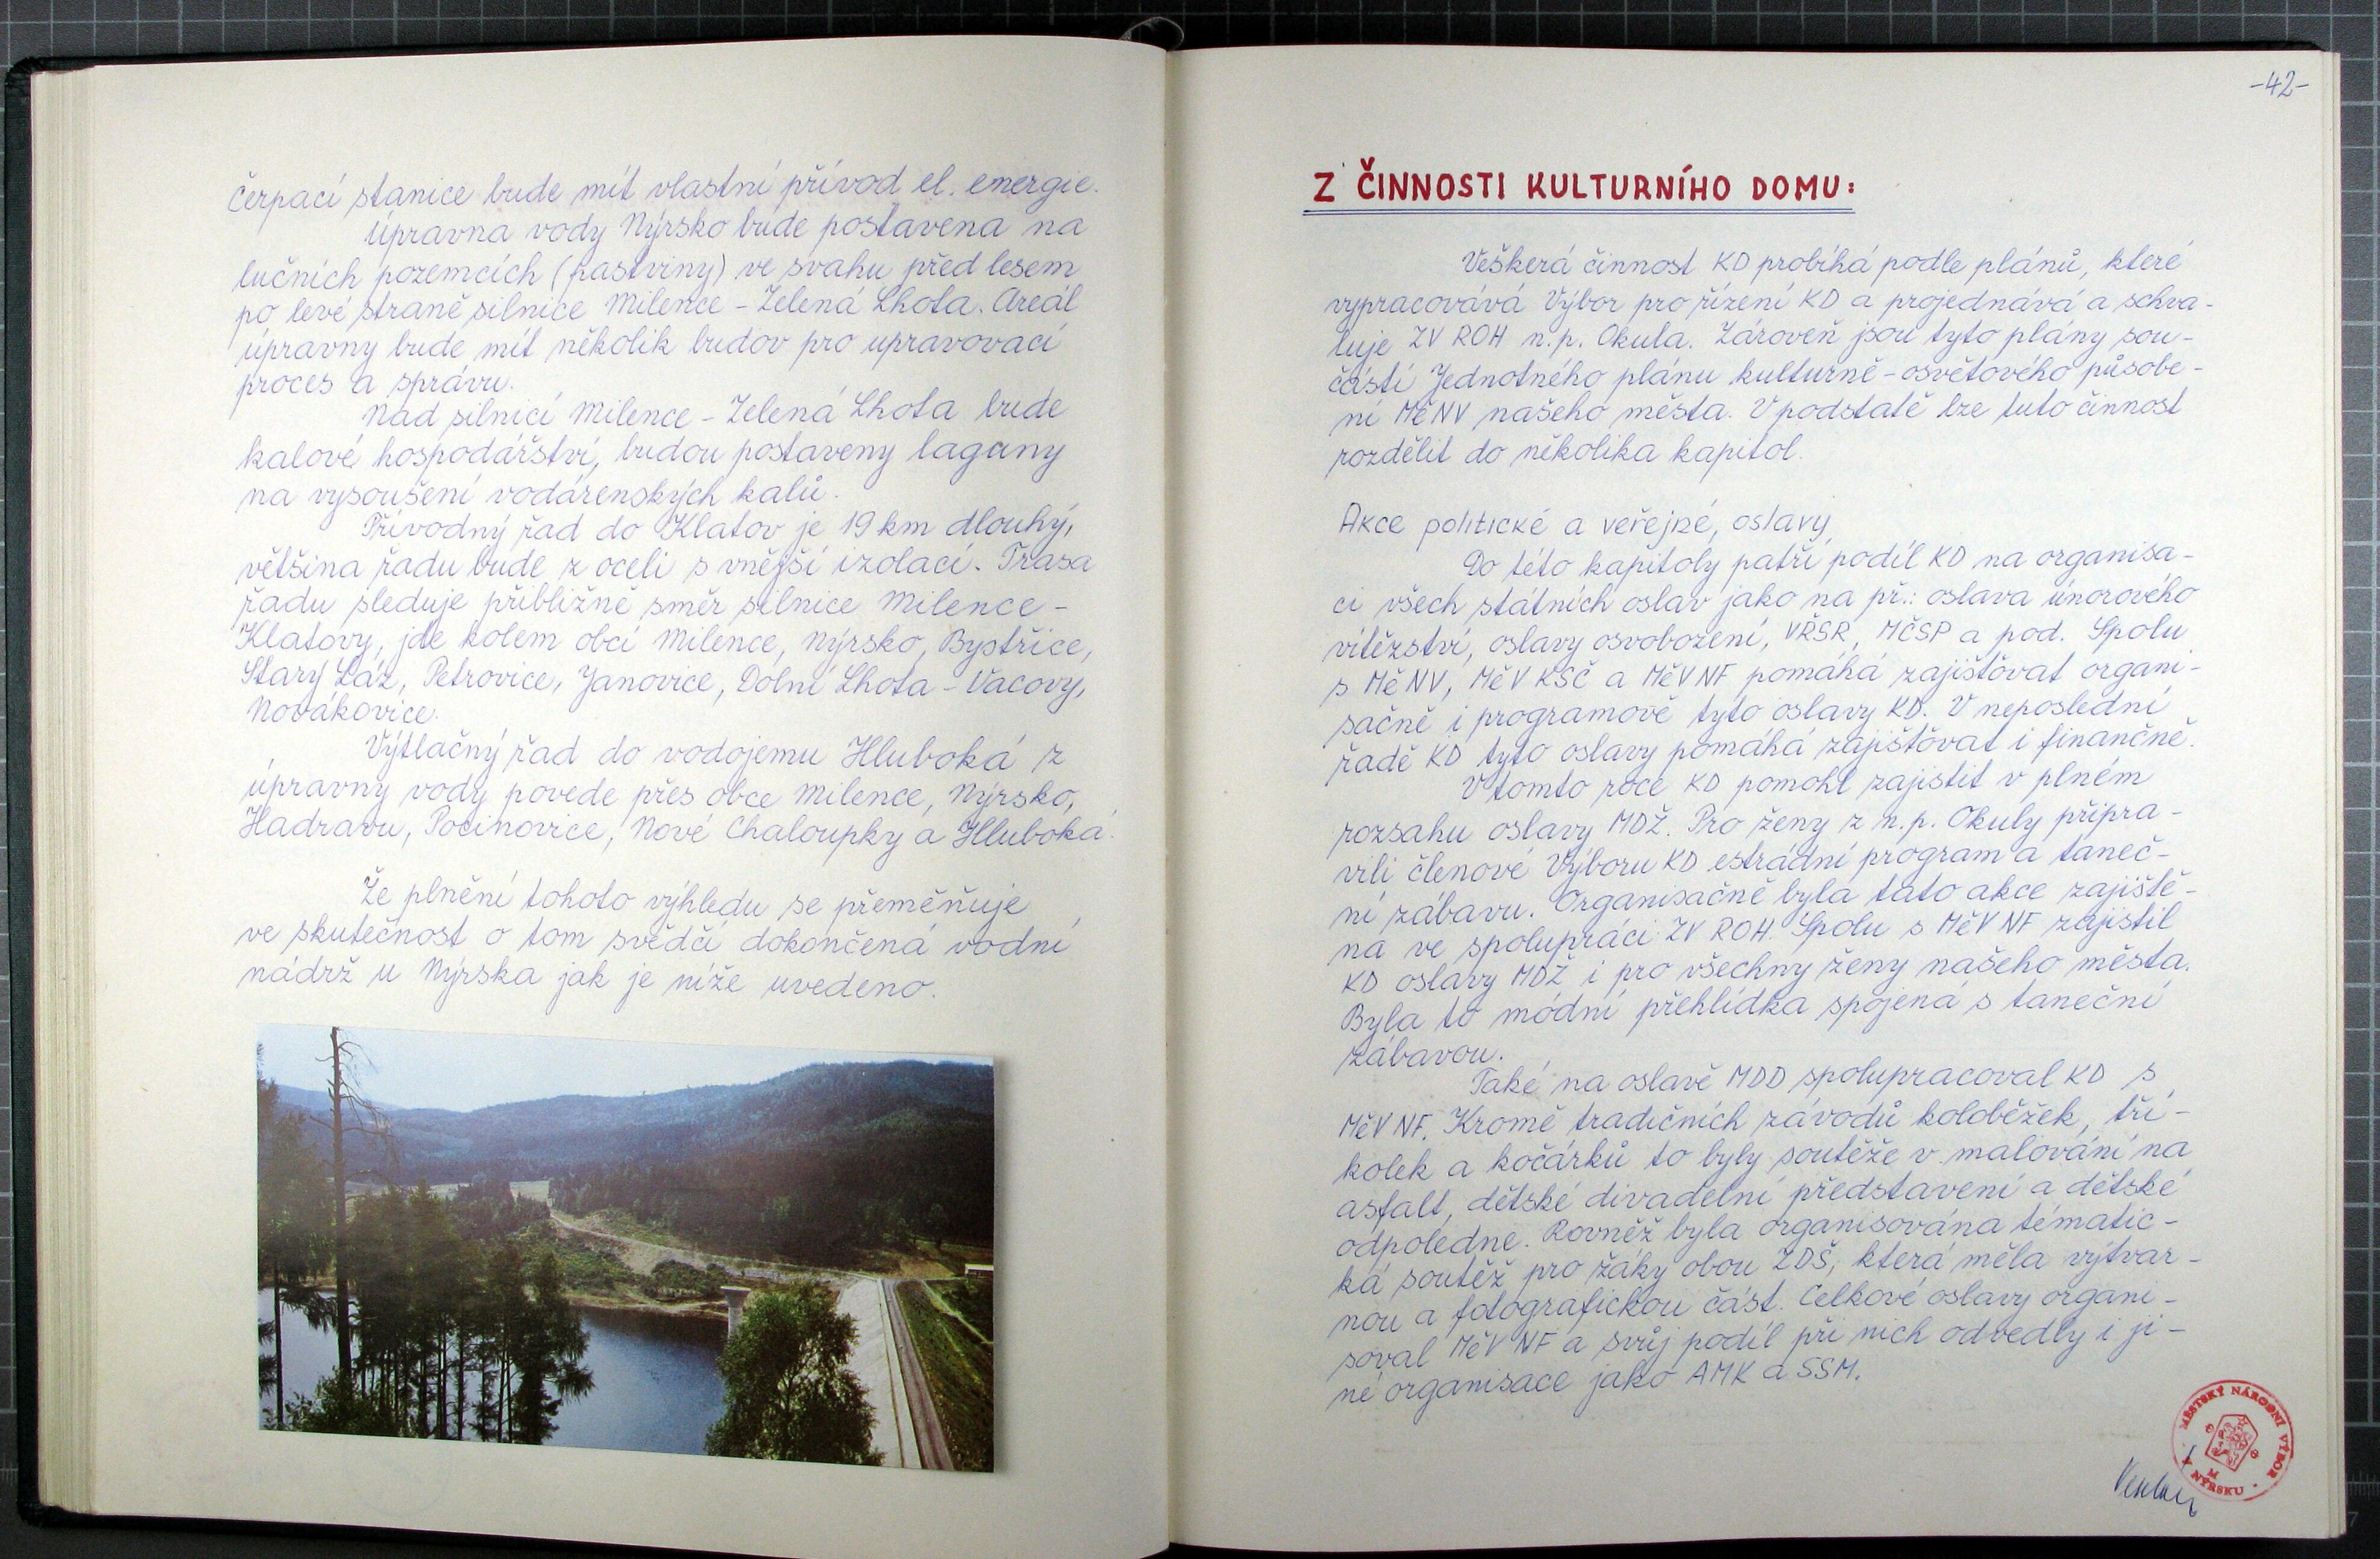 čerpací stanice bude mít vlastní přívod el. energie.
Úpravna vody Nýrsko bude postavena na
lučních pozemcích (pastviny) ve svahu před lesem
po levé straně silnice Milence - Zelená Lhota. Areál
úpravny bude mít několik budov pro upravovací
proces a správu.
Nad silnicí Milence - Zelená Lhota bude
kalové hospodářství, budou postaveny laguny
na vysoušení vodárenských kalů.
Přívodný řad do Klatov je 19 km dlouhý,
většina řadu bude z oceli s vnější izolací. Trasa
řadu sleduje přibližně směr silnice Milence -
Klatovy, jde kolem obcí Milence, Nýrsko, Bystřice,
Starý Láz, Petrovice, Janovice, Dolní Lhota - Vacovy,
Novákovice.
Výtlačný řad do vodojemu Hluboká z
úpravny vody povede přes obce Milence, Nýrsko,
Hadravu, Pocinovice, Nové Chaloupky a Hluboká.
Že plnění tohoto výhledu se přeměňuje
ve skutečnost o tom svědčí dokončená vodní
nádrž u Nýrska jak je níže uvedeno.
-42-
Z ČINNOSTI KULTURNÍHO DOMU:
Veškerá činnost KD probíhá podle plánů, které
vypracovává Výbor pro řízení KD a projednává a schva-
luje ZV ROH n.p. Okula. Zároveň jsou tyto plány sou-
částí Jednotného plánu kulturně - osvětového působe-
ní MěNV našeho města. V podstatě lze tuto činnost
rozdělit do několika kapitol.
Akce politické a veřejné, oslavy
Do této kapitoly patří podíl KD na organisa-
ci všech státních oslav jako na př.: oslava únorového
vítězství, oslavy osvobození, VŘSR, MČSP a pod. Spolu
s MěNV, MěV KSČ a MěV NF pomáhá zajišťovat organi-
sačně i programově tyto oslavy KD. V neposlední
řadě KD tyto oslavy pomáhá zajišťovat i finančně.
V tomto roce KD pomohl zajistit v plném
rozsahu oslavy MDŽ. Pro ženy z n.p. Okuly připra-
vili členové Výboru KD estrádní program a taneč-
ní zábavu. Organisačně byla tato akce zajiště-
na ve spolupráci ZV ROH. Spolu s MěV NF zajistil
KD oslavy MDŽ i pro všechny ženy našeho města.
Byla to módní přehlídka spojená s taneční
zábavou.
Také na oslavě MDD spolupracoval KD s
MěV NF. Kromě tradičních závodů koloběžek, tří-
kolek a kočárků to byly soutěže v malování na
asfalt, dětské divadelní představení a dětské
odpoledne. Rovněž byla organisována tématic-
ká soutěž pro žáky obou ZDŠ, která měla výtvar-
nou a fotografickou část. Celkové oslavy organi-
soval MěV NF a svůj podíl při nich odvedly i ji-
né organisace jako AMK a SSM.
MĚSTSKÝ NÁRODNÍ VÝBOR
V NÝRSKU
M